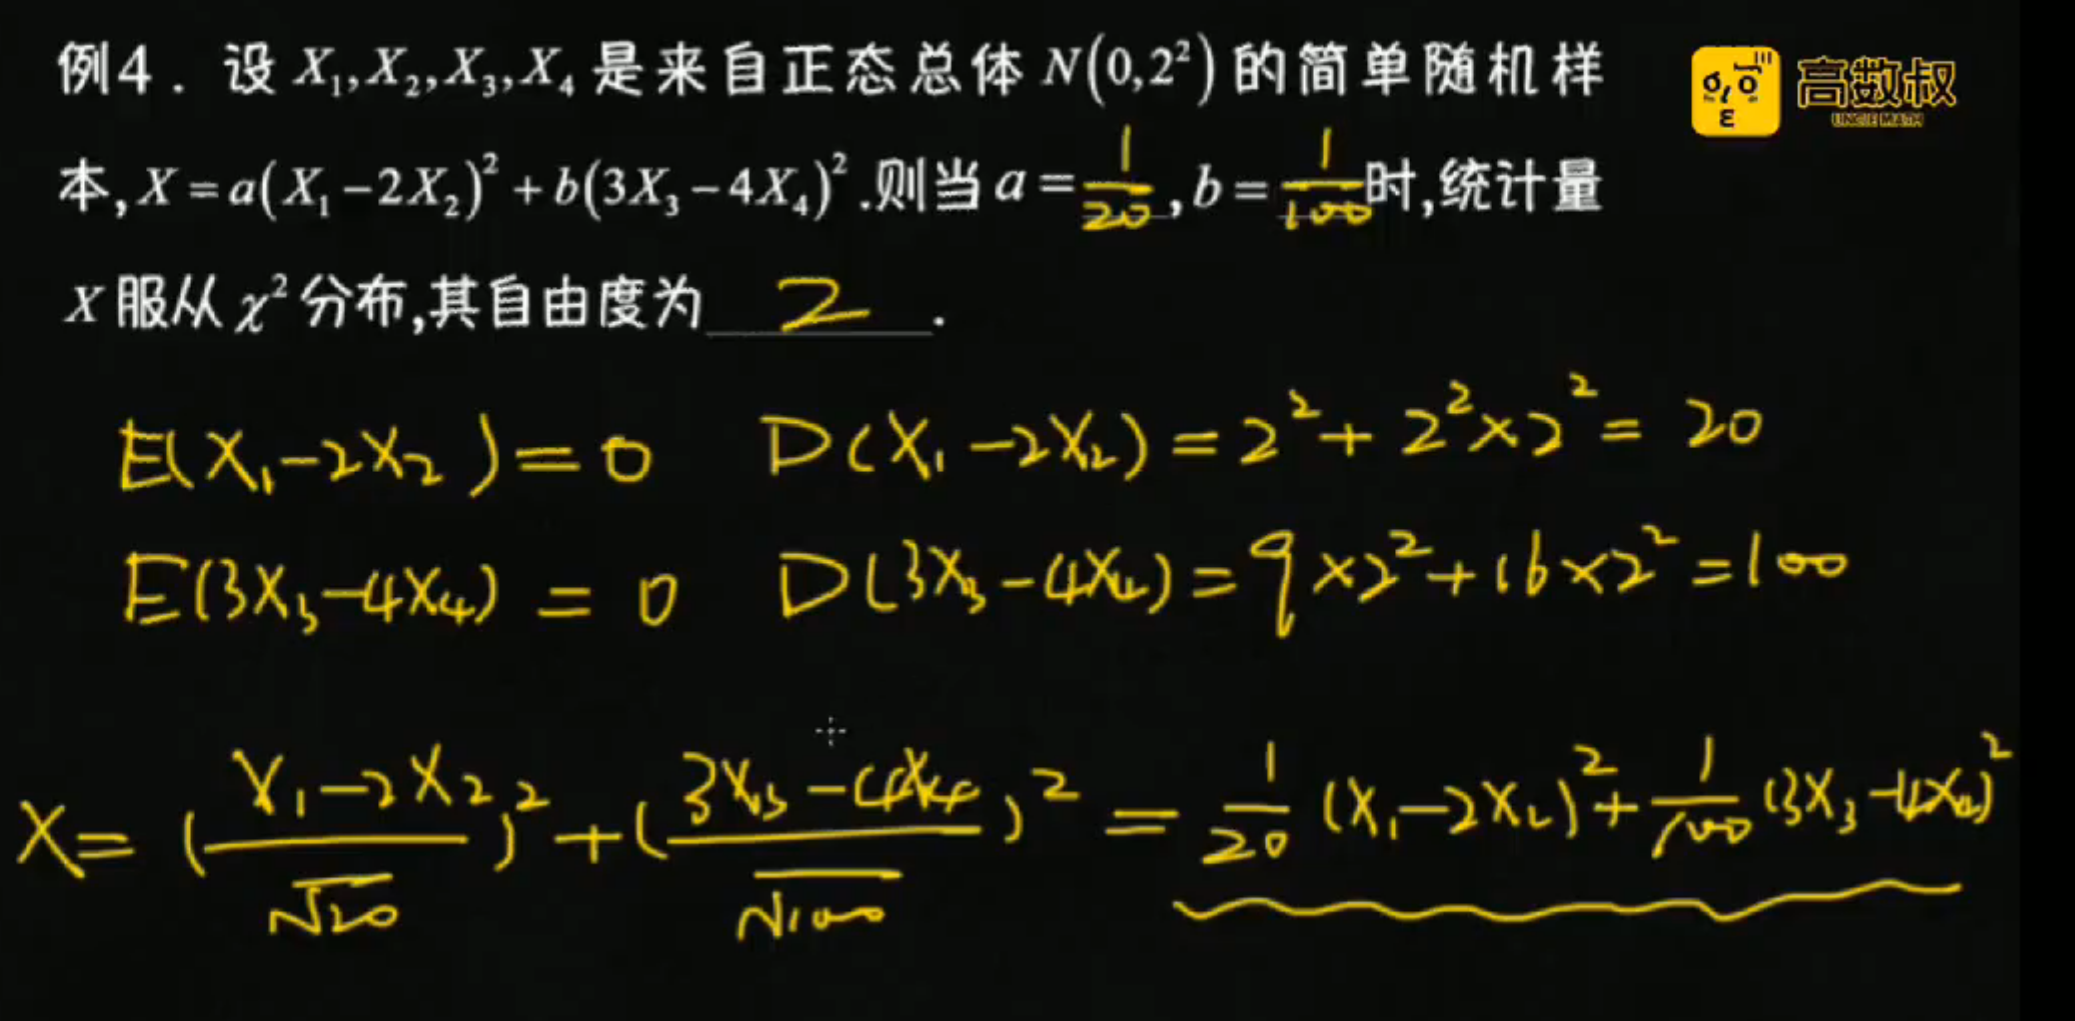 例4．设 X₁,X₂,X₃,X₄ 是来自正态总体 N(0,2²) 的简单随机样
本, X = a(X₁−2X₂)² + b(3X₃−4X₄)² .则当 a = 1/20 , b = 1/100 时,统计量
X 服从 χ² 分布,其自由度为 2 .
高数叔
UNCLE MATH
E(X₁−2X₂) = 0 D(X₁−2X₂) = 2² + 2²×2² = 20
E(3X₃−4X₄) = 0 D(3X₃−4X₄) = 9×2² + 16×2² = 100
X = ((X₁−2X₂)/√20)² + ((3X₃−4X₄)/√100)² = 1/20 (X₁−2X₂)² + 1/100 (3X₃−4X₄)²